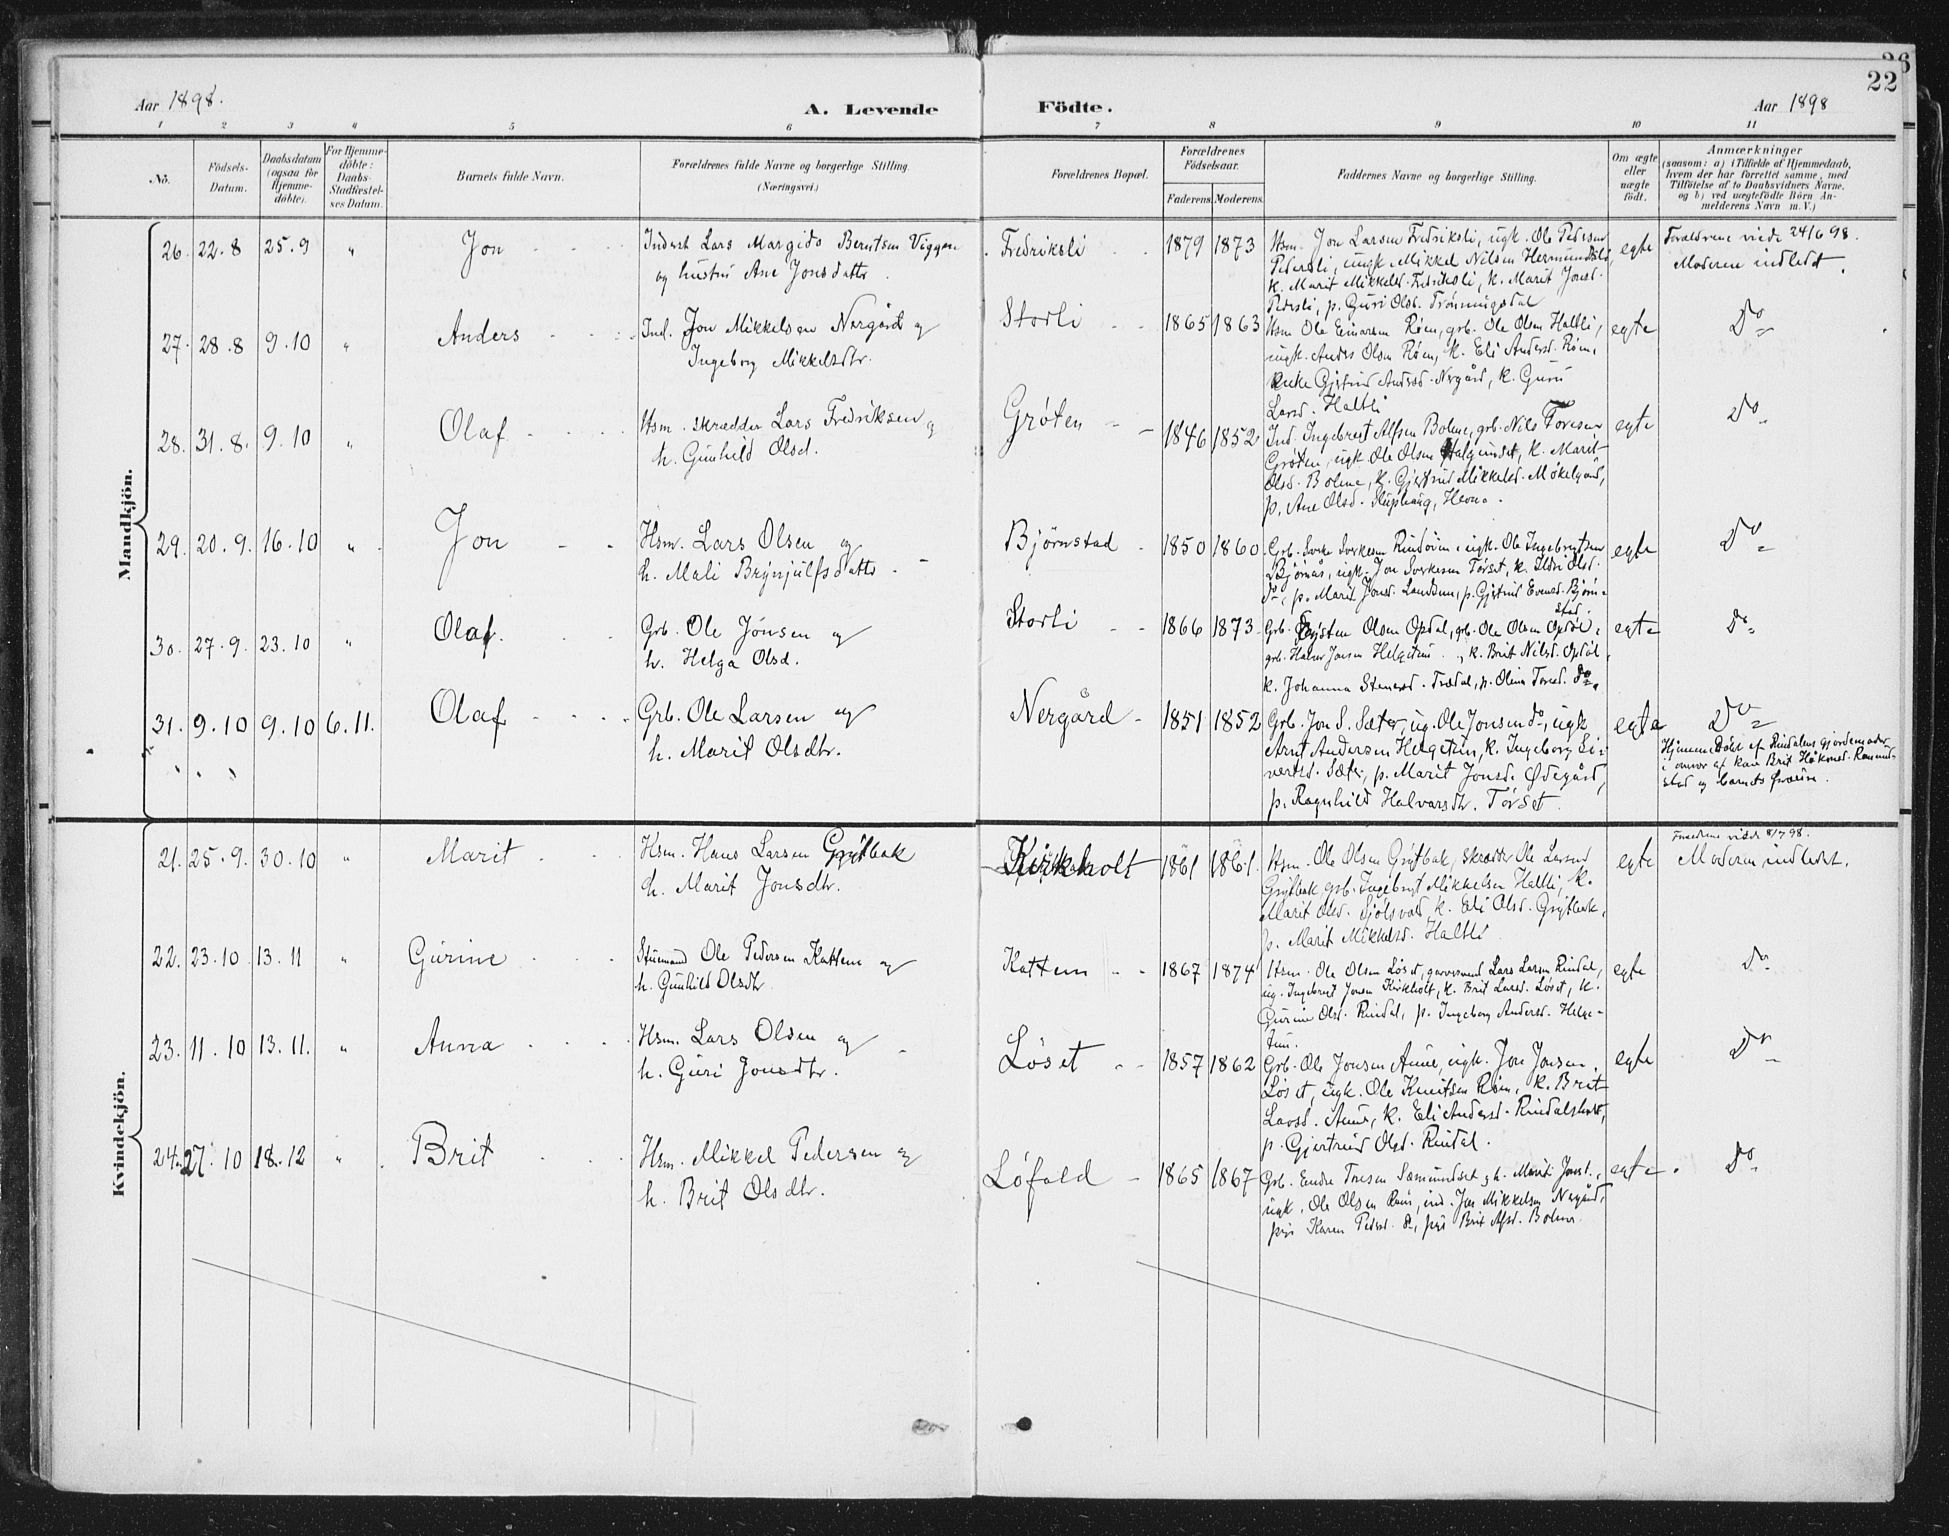 26
22
Aar 1898.
A. Levende Födte.
Aar 1898
1 2 3 4 5 6 7 8 9 10 11
No. Födsels-Datum. Daabsdatum (ogsaa for Hjemme-döbte). For Hjemme-döbte: Daabs-Stadfæstel-ses Datum. Barnets fulde Navn. Forældrenes fulde Navne og borgerlige Stilling. (Næringsvei.) Forældrenes Bopæl. Forældrenes Födselsaar. Faderens Moderens. Faddernes Navne og borgerlige Stilling. Om ægte eller uægte födt. Anmærkninger (saasom: a) i Tilfælde af Hjemmedaab, hvem der har forrettet samme, med Tilföielse af to Daabsvidners Navne, og b) ved uægtefödte Börn An-melderens Navn m. V.)
Mandkjön.
26. 22.8 25.9 " Jon Inderst Lars Margido Berntsen Viggen
og hustru Ane Jonsdatter
Fredriksli 1879 1873
Hsm. Jon Larsen Fredriksli, ugk. Ole Pedersen
Pedersli, ungk Mikkel Nilsen Hermundsli
k. Marit Mikkelsd. Fredriksli, k. Marit Jonsd.
Pedersli, p. Guri Olsd. Trønningsdal
egte Forældrene viede 24/6 98.
Moderen indledet.
27. 28.8 9.10 " Anders Ind. Jon Mikkelsen Nergård og
Ingeborg Mikkelsdtr.
Storli 1865 1863
Hsm Ole Einarsen Røen, grb. Ole Olsen Haltli,
ungk. Anders Olsen Røen, k. Eli Andersd. Røen,
enke Gjertrud Andersd. Nergård, k. Guru
Larsd. Haltli
egte Do
28. 31.8. 9.10 " Olaf Hsm. skrædder Lars Fredriksen og
h. Gunhild Olsd.
Grøten 1846 1852
Ind. Ingebrigt Alfsen Bolme, grb. Nils Toresen
Grøten, ugk Ole Olsen Halgunset, k. Marit
Olsd. Bolme, k. Gjertrud Mikkelsd. Møkelgård,
p. Ane Olsd. Sluphaug, Hevne.
egte Do
29. 20.9. 16.10 " Jon Hsm. Lars Olsen og
h. Mali Brynjulfsdatter
Bjørnstad 1850 1860
Grb. Sverke Sverkesen Rindøien, ugk. Ole Ingebrigtsen
Bjørnås, ugk. Jon Sverkesen Tørset, k. Sildri Olsd.
do, p. Marit Jonsd. Landsem, p. Gjertrud Evensd. Bjørn-
stad.
egte Do
30. 27.9. 23.10 " Olaf. Grb. Ole Jonsen og
h. Helga Olsd.
Storli 1866 1873
Grb. Eysten Olsen Opdal, grb. Ole Olsen Opdøl,
grb. Halvor Jonsen Helgetun, k. Brit Nilsd. Opdøl,
k. Johanna Stenersd. Trædal, p. Olina Toresd. Do
egte Do
31. 9.10 9.10 6.11. Olaf Grb. Ole Larsen og
h. Marit Olsdtr.
Nergård 1851 1852
Grb. Jon S. Sæter, ug. Ole Jonsen do, ugk
Arnt Andersen Helgetun, k. Ingeborg Si-
vertsd. Sæter, p. Marit Jonsd. Ødegård,
p. Ragnhild Halvorsdtr. Tørset.
egte Do
Hjemmedøbt af Rindalens gjordemoder
i nærvær af kone Brit Håkensd. Romund-
stad og barnets
Kvindekjön.
21. 25.9. 30.10 " Marit Hsm. Hans Larsen Grytbak
h. Marit Jonsdtr.
Kirkholt 1861 1861.
Hsm. Ole Olsen Grytbak, skrædder Ole Larsen
Grytbak, grb. Ingebrigt Mikkelsen Haltli, k.
Marit Olsd. Sjølsvold, k. Eli Olsd. Grytbak,
p. Marit Mikkelsd. Haltli
egte Forældrene viede 8/7 98.
Moderen indledet.
22. 23.10. 13.11 " Gurine Stuemand Ole Pedersen Kattem og
h. Gunhild Olsdtr.
Kattem 1867 1874
Hsm. Ole Olsen Løset, garversvend Lars Larsen Rindal,
ug. Ingebrigt Jonsen Kirkholt, k. Brit Larsd. Løset, k.
Gurine Olsd. Rindal, p. Ingeborg Andersd. Helge-
tun.
egte Do
23. 11.10 13.11. " Anna Hsm. Lars Olsen og
h. Guri Jonsdtr.
Løset 1857 1862
Grb. Ole Jonsen Aune, ugk. Jon Jonsen
Løset, ugk. Ole Knutsen Røen, k. Brit
Larsd. Aune, k. Eli Andersd. Rindalsholt,
p. Gjertrud Olsd. Rindal.
egte Do
24. 27.10 18.12 " Brit Hsm. Mikkel Pedersen og
h. Brit Olsdtr.
Løfald 1865 1867
Grb. Endre Toresen Sæmundset, g.h. Marit Jonsd.,
ugk. Ole Olsen, ind. Jon Mikkelsen Nergård,
pige Karen Pedersd. do, pige Brit Alfsd. Bolme.
egte. Do